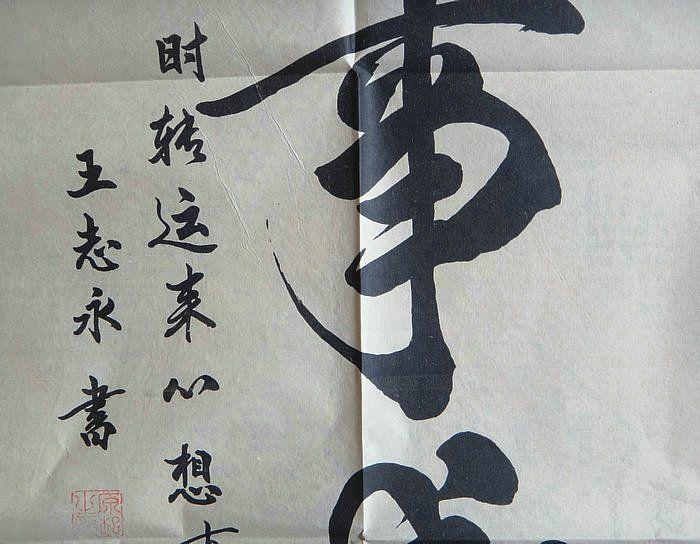 事
时转运来心想
王志永书